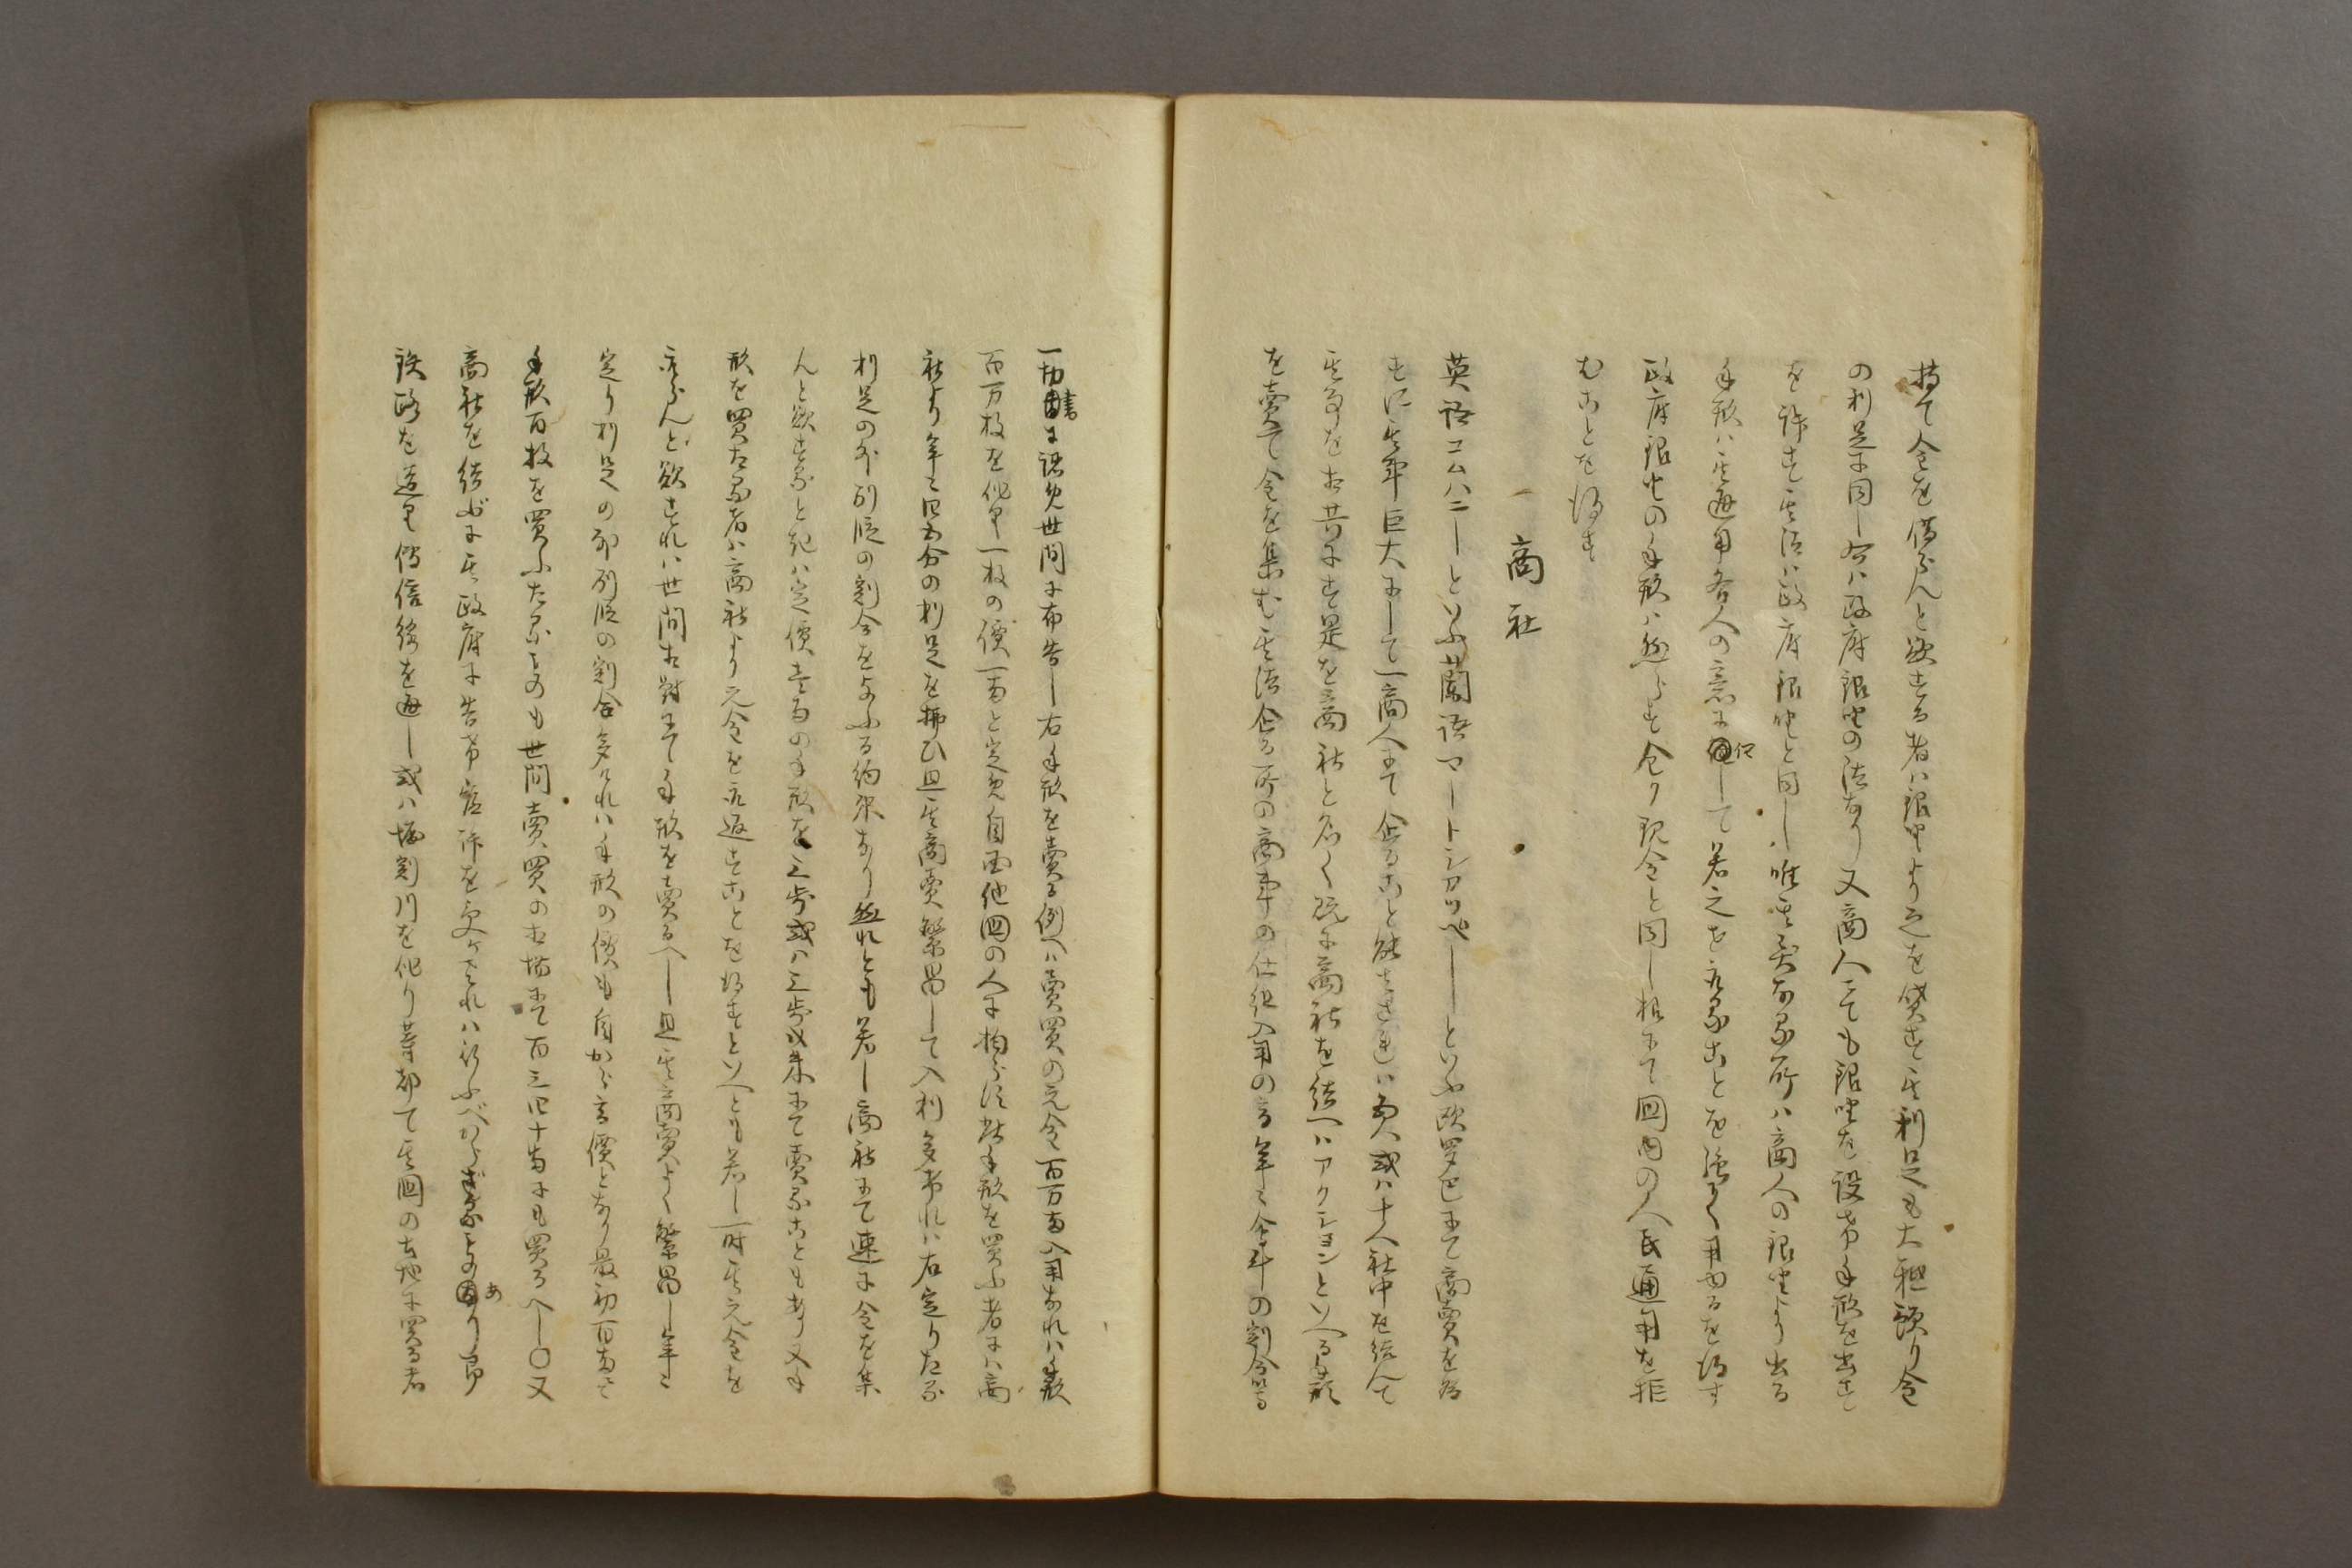 持て金を借らんと欲する者ハ銀坐より之を貸す其利足も大抵預り金
の利足に同し右ハ政府銀坐の法なり又商人にても銀坐を設け手形を出す
を許す其法ハ政府銀坐と同し唯其異なる所ハ商人の銀坐より出る
手形ハ其通用各人の意に任して若之を取ることを強く用ゆるを得す
政府銀坐の手形ハ然らす全ク現金と同し極て国内の人民通用を拒
むことを得す
一 商社
英語コムパニーといふ蘭語マートシカッペーといふ欧羅巴にて商売を為
すに其事巨大にして一商人にて企ること能ハされハ五人或ハ十人社中を結んて
其事を相共にす是を商社と名く既に商社を結へハアクションといへる手形
を売て金を集む其法企る所の商事の仕組入用の高年々会計の割合等
一切書に認め世間に布告し右手形を売る例へハ売買の元金百万両入用なれハ手形
百万枚を作り一枚の価一両と定め自国他国の人に拘らす此手形を買ふ者にハ商
社より年々四五分の利足を払ひ且其商売繁昌して入利多けれハ右定りたる
利足の外別段の割合を与ふる約束なり然れとも若し商社にて速に金を集
んと欲するとき ハ定価壱両の手形を三歩或ハ三歩弐朱にて売ることもあり又手
形を買たる者ハ商社より元金を取返すことを得すといへとも若し一時其元金を
取らんと欲すれハ世間相対にて手形を売るへし且其商売よく繁昌し年々
定り利足の外別段の割合多けれハ手形の価も自から高価となり最初百両にて
手形百枚を買ふたるものも世間売買の相場にて百三四十両にも買るへし〇又
商社を結ぶに其政府に告け官許を受けされハ行ふべからざるものあり即
鉄路を造り伝信線を通し或ハ堀割川を作り等都て其国の土地に関る者